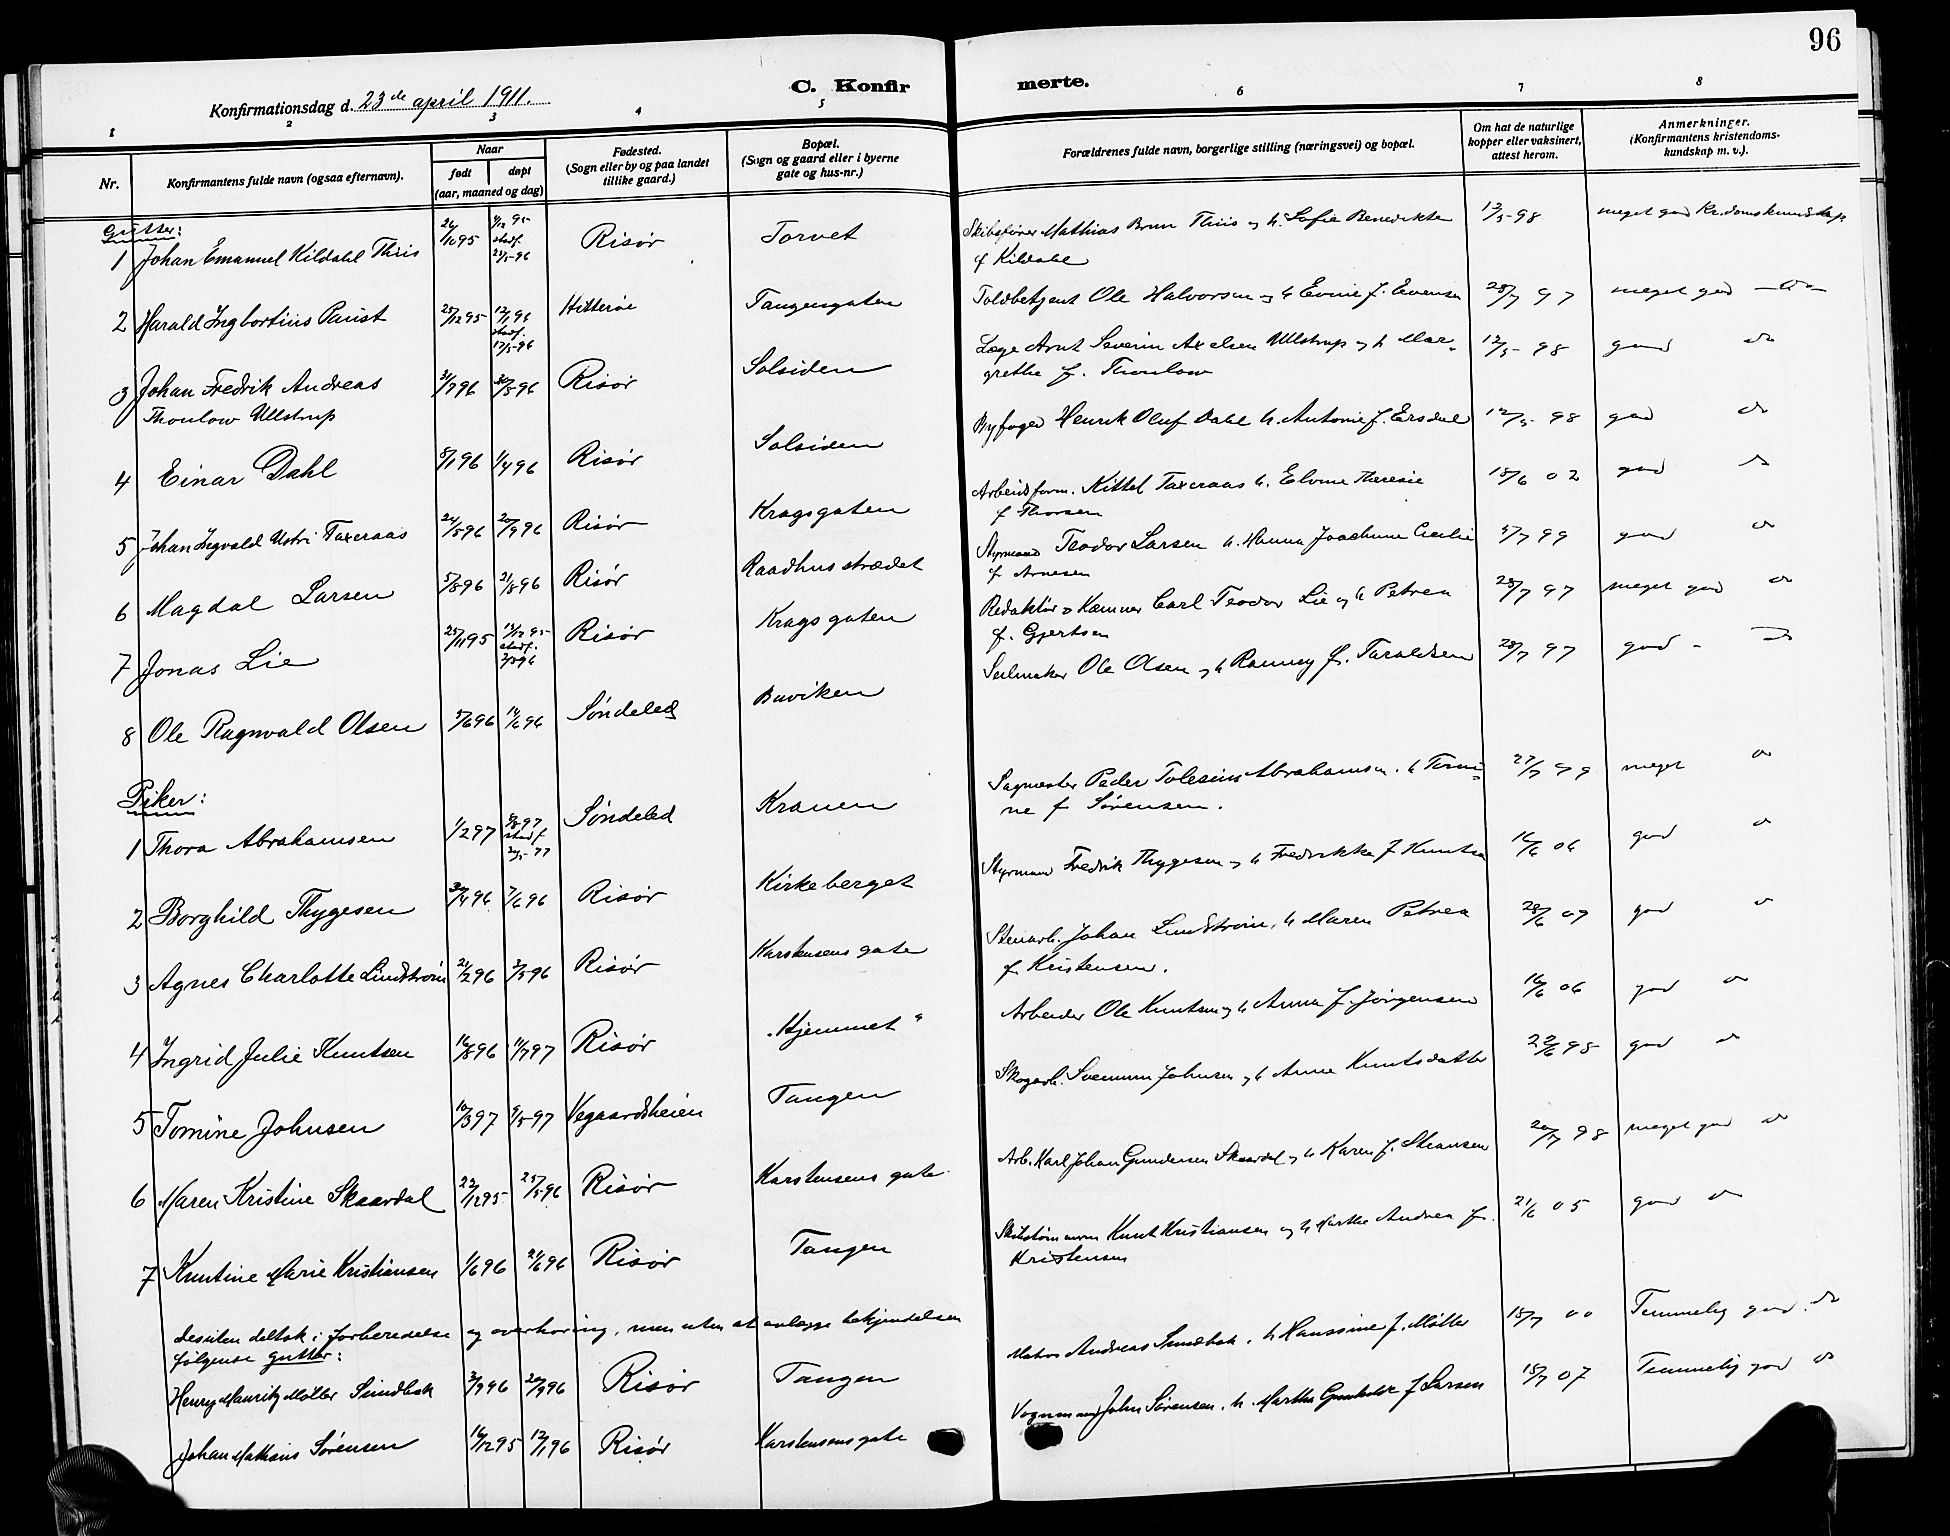 96
C. Konfirmerte.
Konfirmationsdag d. 23de april 1911.
1 2 3 4 5 6 7 8
Nr.
Konfirmantens fulde navn (ogsaa efternavn).
Naar
født
døpt
(aar, maaned og dag)
Fødested.
(Sogn eller by og paa landet
tillike gaard.)
Bopæl.
(Sogn og gaard eller i byerne
gate og hus-nr.)
Forældrenes fulde navn, borgerlige stilling (næringsvei) og bopæl.
Om hat de naturlige
kopper eller vaksinert,
attest herom.
Anmerkninger.
(Konfirmantens kristendoms-
kundskap m. v.).
Gutter:
1 Johan Emanuel Kildahl Thiis 24/10 95 8/12 95 stadf. 25/5-96 Risør Torvet Skibsfører Mathias Brun Thiis og h. Sofie Benedikte
f Kildahl 12/5-98 meget god Kr.domskundskap
2 Harald Ingbortius Paust 25/12 95 12/1 96 stadf. 17/5-96 Hitterøe Tangengaten Toldbetjent Ole Halvorsen og h Evine f. Evensen 28/7 97 meget god do
3 Johan Fredrik Andreas
Thoulow Ullstrup 31/7 96 30/8 96 Risør Solsiden Læge Arnt Severin Axelsen Ullstrup og h Mar-
grethe f. Thoulow 12/5-98 god do
4 Einar Dahl 8/1 96 1/4 96 Risør Solsiden Byfoged Henrik Oluf Dahl h. Antonie f. Ersdal 12/5 98 god do
5 Johan Ingvald Taxeraas 24/5 96 20/9 96 Risør Kragsgaten Arbeidsform. Kittel Taxeraas h. Elvine Theresie
f Thorsen 18/6 02 god do
6 Magdal Larsen 5/8 96 21/8 96 Risør Raadhusstrædet Styrmand Teodor Larsen h. Hanna Joachime Cecilie
f Arnesen 5/7 99 god do
7 Jonas Lie 25/11 95 13/12 95 stadf. Risør Kragsgaten Redaktør & Kæmner Carl Teodor Lie og h Petrea
f. Gjertsen 28/7 97 meget god do
8 Ole Ragnvald Olsen 5/6 96 14/6 96 Søndeled Buviken Seilmaker Ole Olsen og h Ranney f. Taraldsen 28/7 97 god do
Piker:
1 Thora Abrahamsen 1/2 97 8/8 97 stadf. Søndeled Kranen Sagmester Peder Tolesius Abrahamsen. h Tomi-
ne f Sørensen. 27/7 99 meget do
2 Borghild Thygesen 30/4 96 7/6 96 Risør Kirkeberget Styrmand Fredrik Thygesen og h Fredrikke f Knutsen 16/6 06 god do
3 Agnes Charlotte Lindstrøm 21/2 96 3/5 96 Risør Karstensens gate Stenarb. Johan Lindstrøm, h Maren Petrea
f Kristensen. 28/6 07 god do
4 Ingrid Julie Knutsen 16/8 96 11/7 97 Risør "Hjemmet" Arbeider Ole Knutsen og h Anna f. Jørgensen 16/6 06 god do
5 Tomine Johnsen 10/3 97 9/5-97 Vegaardsheien Tangen Skogarb. Svennum Johnsen og h Anne Knutsdatter 22/6 98 god do
6 Maren Kristine Skaardal 22/12 95 25/5 96 Risør Karstensens gate Arb. Karl Johan Gundersen Skaardal og h Karen f. Steansen 20/7 98 meget god do
7 Knutine Marie Kristiansen 1/6 96 21/6 96 Risør Tangen Skibstømmerm Knut Kristiansen og h Marthe Andrea f.
Kristensen 21/6 05 god do
desuten deltok i forberedelse og overhøring, men uten at avlægge bekjendelsen
følgende gutter:
Henry Mauritz Møller Sundbek 3/9 96 20/9 96 Risør Tangen Matros Andreas Sundbek. h Hanssine f. Møller 18/7 00 Temmelig god. do
Johan Mathæus Sørensen 16/12 95 12/1 96 Risør Karstensens gate Vognmand John Sørensen. h. Marthe Gunhild f Larsen 15/7 07 Temmelig god do